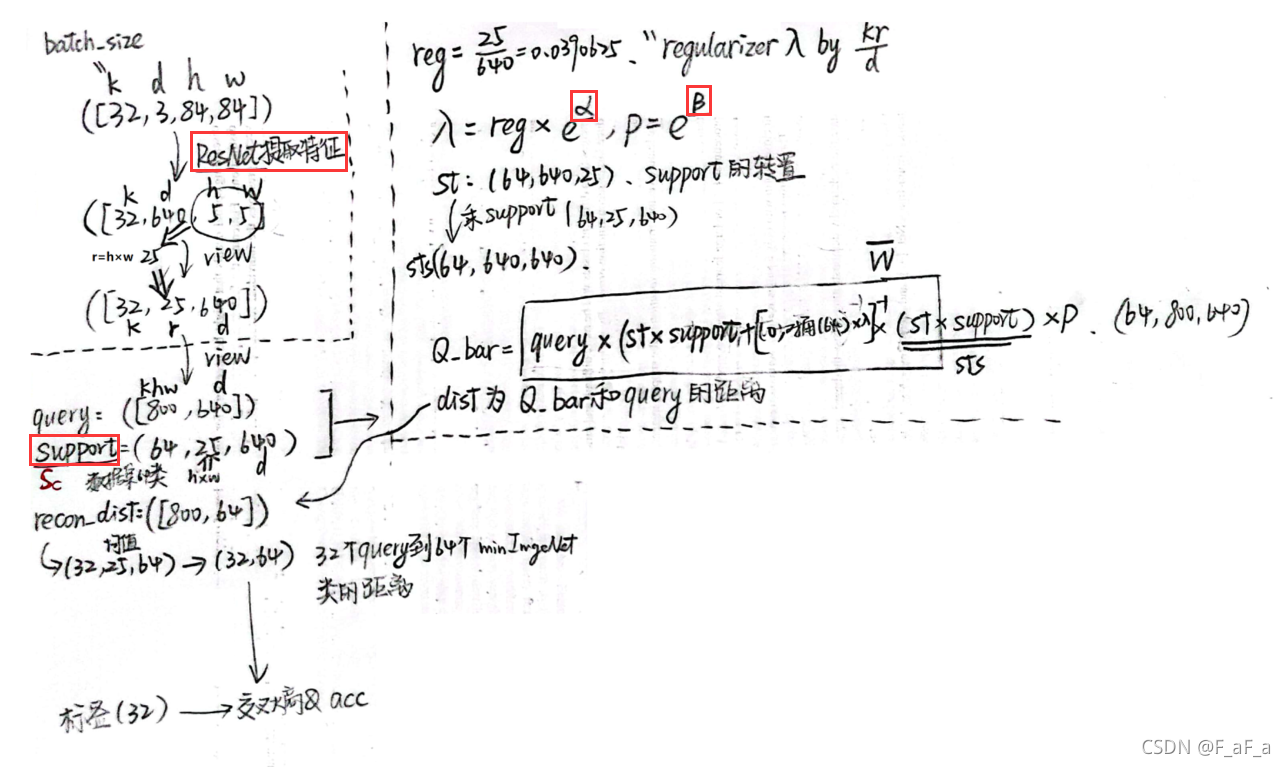 batch_size
"k d h w
([32,3,84,84])
ResNet提取特征
k d h w
([32,640,5,5]
r=h×w 25 view
([32,25,640])
k r d
view
khw d
query: ([800,640])
support=(64,25,640)
Sc 数据集64类 h×w d
recon_dist=([800,64])
均值
(32,25,64)→(32,64) 32个query到64个minImgeNet
类的距离
标签(32)→交叉熵& acc
reg=25/640=0.0390625、"regularizer λ by kr/d
λ=reg×e^α,ρ=e^β
st:(64,640,25)、support的转置
乘support(64,25,640)
sts(64,640,640).
W̅
Q_bar=query×(st×support+ ×λ)^-1×(st×support)×ρ、(64,800,640)
sts
dist为Q_bar和query的距离
CSDN @F_aF_a